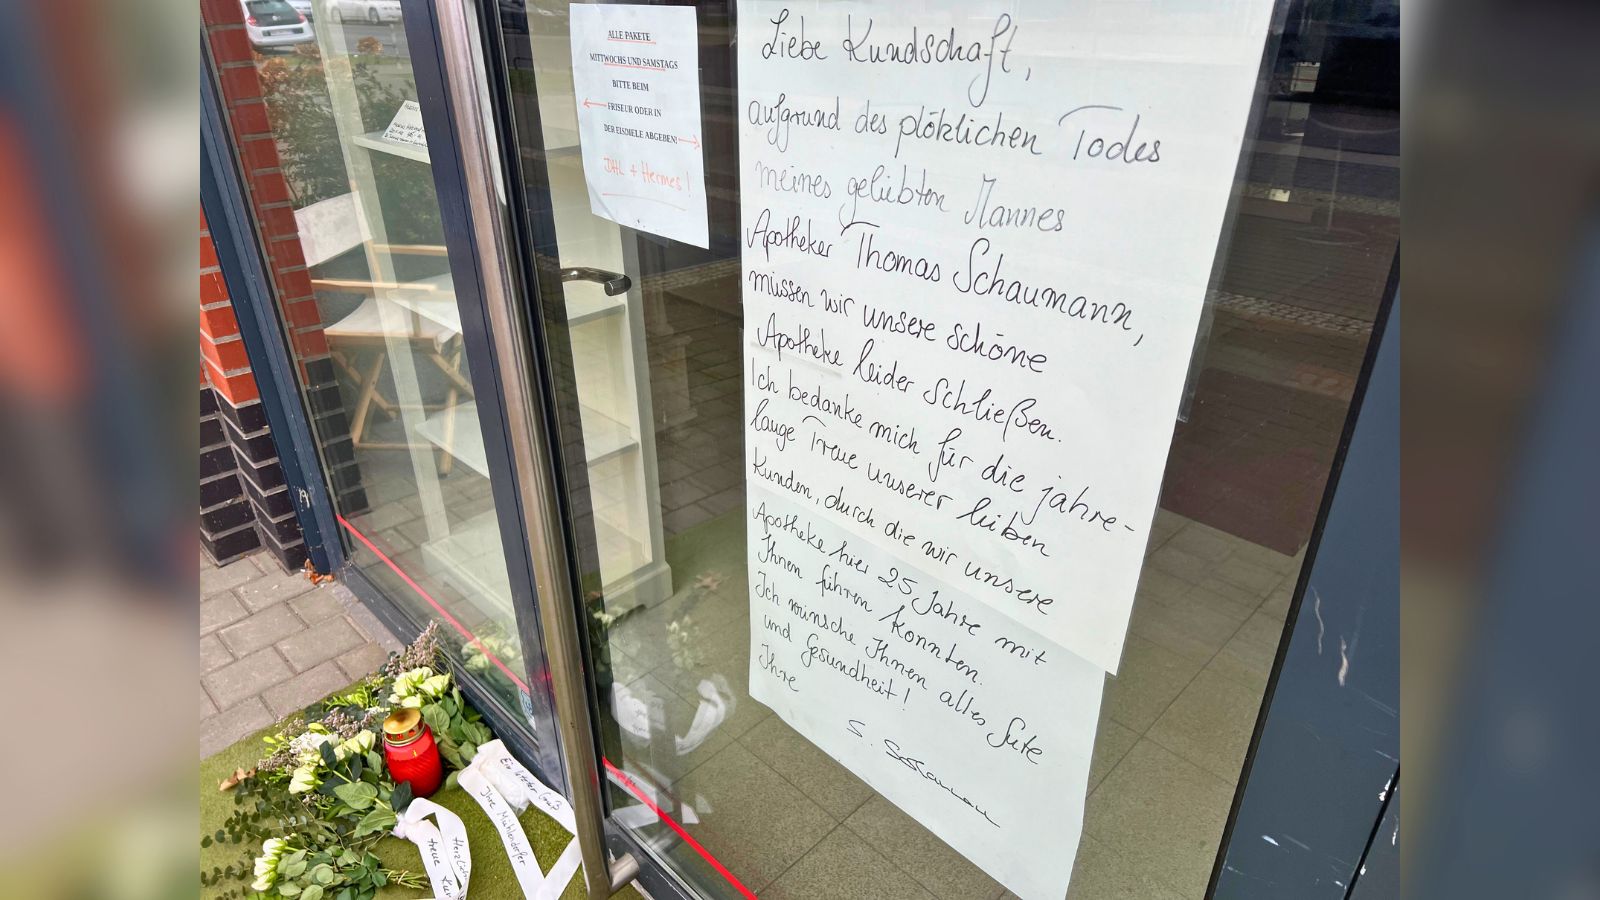 ALLE PAKETE
MITTWOCHS UND SAMSTAGS
BITTE BEIM
FRISEUR ODER IN
DER EISDIELE ABGEBEN!
DHL + Hermes!
Liebe Kundschaft,
aufgrund des plötzlichen Todes
meines geliebten Mannes
Apotheker Thomas Schaumann,
müssen wir unsere schöne
Apotheke leider schließen.
Ich bedanke mich für die jahre-
lange Treue unserer lieben
Kunden, durch die wir unsere
Apotheke hier 25 Jahre mit
Ihnen führen konnten.
Ich wünsche Ihnen alles Gute
und Gesundheit!
Ihre
S. Schaumann
Ein letzter Gruß
Ihre Mühlendorfer
Herzlich
treue Kun